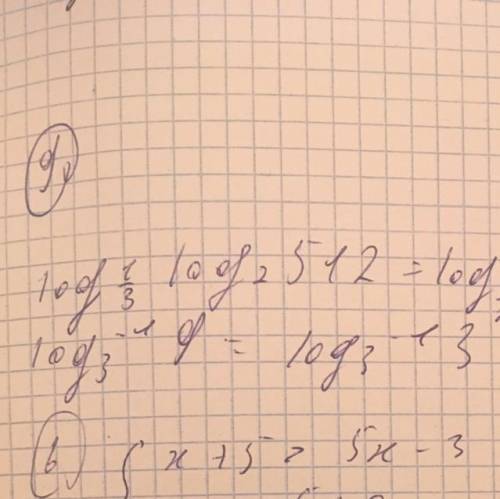 9)
log 1/3 log₂ 512 = log
log₃⁻¹ 9 = log₃⁻¹ 3
6) { x + 5 > 5x - 3